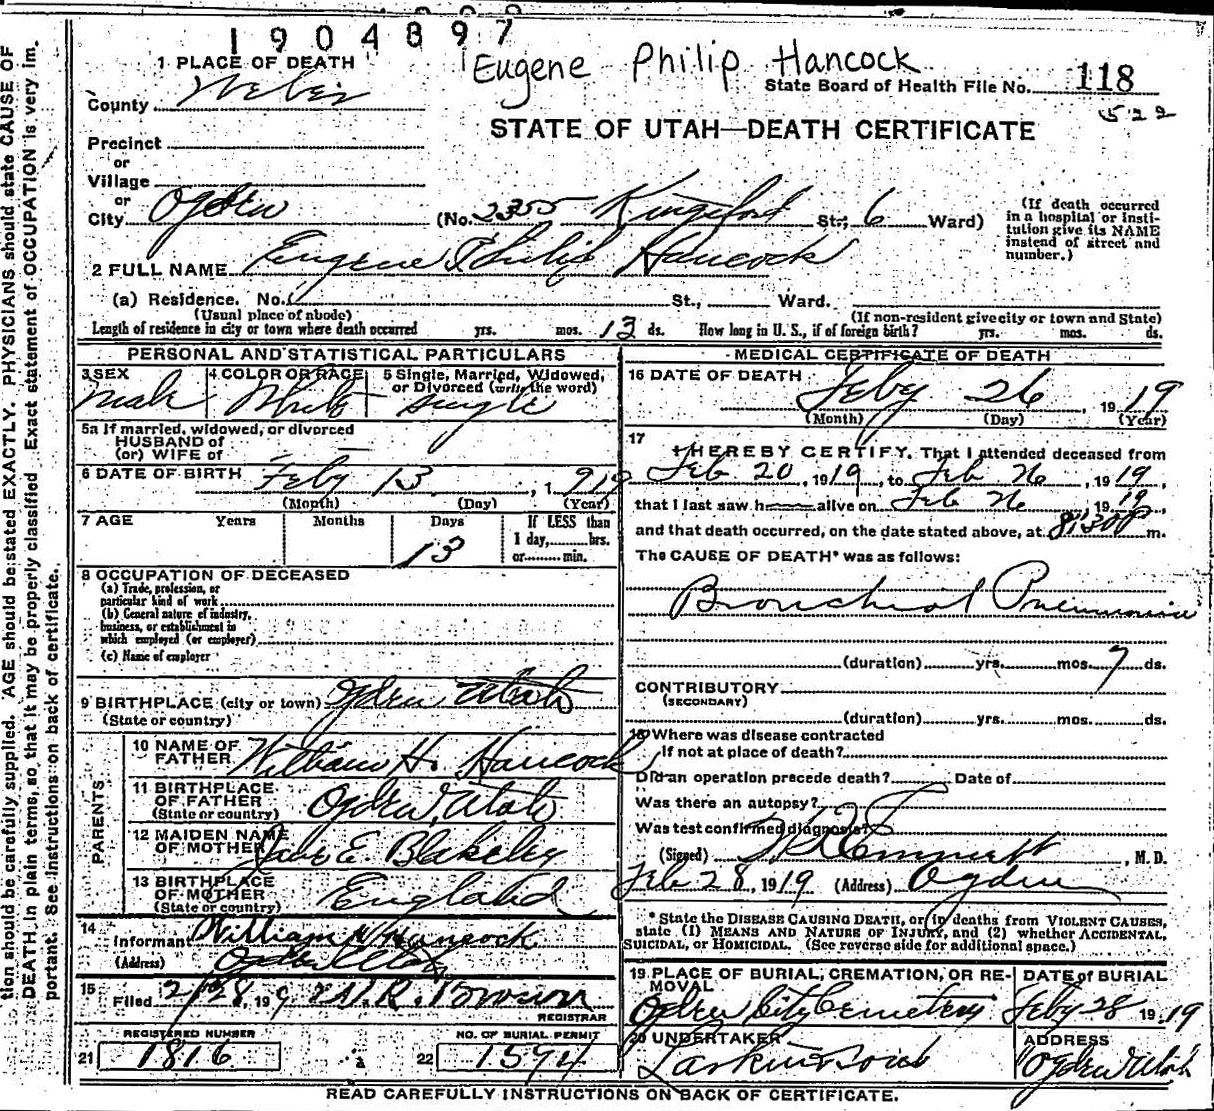 1904897
Eugene Philip Hancock
1 PLACE OF DEATH
County Weber
State Board of Health File No. 118
522
STATE OF UTAH—DEATH CERTIFICATE
Precinct
or
Village
or
City Ogden (No. 2355 Kingsford St.; 6 Ward)
(If death occurred in a hospital or insti-
tution give its NAME instead of street and number.)
2 FULL NAME Eugene Philip Hancock
(a) Residence. No. St., Ward.
(Usual place of abode) (If non-resident give city or town and State)
Length of residence in city or town where death occurred yrs. mos. 13 ds. How long in U. S., if of foreign birth? yrs. mos. ds.
PERSONAL AND STATISTICAL PARTICULARS
3 SEX 4 COLOR OR RACE 5 Single, Married, Widowed, or Divorced (write the word)
Male White Single
5a If married, widowed, or divorced
HUSBAND of
(or) WIFE of
6 DATE OF BIRTH Feby 13, 1919
(Month) (Day) (Year)
7 AGE Years Months Days If LESS than
1 day, hrs.
or min.
13
8 OCCUPATION OF DECEASED
(a) Trade, profession, or
particular kind of work
(b) General nature of industry,
business, or establishment in
which employed (or employer)
(c) Name of employer
9 BIRTHPLACE (city or town) Ogden Utah
(State or country)
PARENTS
10 NAME OF FATHER William H. Hancock
11 BIRTHPLACE OF FATHER Ogden, Utah
(State or country)
12 MAIDEN NAME OF MOTHER Jane E. Blakeley
13 BIRTHPLACE OF MOTHER England
(State or country)
14 Informant William H Hancock
(Address) Ogden Utah
15 Filed 2/28, 19 9 W.R. Brown
REGISTRAR
REGISTERED NUMBER NO. OF BURIAL PERMIT
21 1816 22 1594
MEDICAL CERTIFICATE OF DEATH
16 DATE OF DEATH Feby 26, 1919
(Month) (Day) (Year)
17
I HEREBY CERTIFY, That I attended deceased from
Feb 20, 1919, to Feb 26, 1919,
that I last saw h alive on Feb 26, 1919,
and that death occurred, on the date stated above, at 8:30 P m.
The CAUSE OF DEATH* was as follows:
Bronchial Pneumonia
(duration) yrs. mos. 7 ds.
CONTRIBUTORY
(SECONDARY)
(duration) yrs. mos. ds.
18 Where was disease contracted
If not at place of death?
Did an operation precede death? Date of
Was there an autopsy?
Was test confirmed diagnosis?
(Signed) Emmett, M. D.
Feb 28, 1919 (Address) Ogden
* State the DISEASE CAUSING DEATH, or in deaths from VIOLENT CAUSES,
state (1) MEANS AND NATURE OF INJURY, and (2) whether ACCIDENTAL,
SUICIDAL, or HOMICIDAL. (See reverse side for additional space.)
19 PLACE OF BURIAL, CREMATION, OR RE-
MOVAL
Ogden City Cemetery
DATE of BURIAL
Feby 28 1919
20 UNDERTAKER
Larkin & Sons
ADDRESS
Ogden Utah
READ CAREFULLY INSTRUCTIONS ON BACK OF CERTIFICATE.
tion should be carefully supplied. AGE should be stated EXACTLY. PHYSICIANS should state CAUSE OF
DEATH in plain terms, so that it may be properly classified. Exact statement of OCCUPATION is very im-
portant. See instructions on back of certificate.